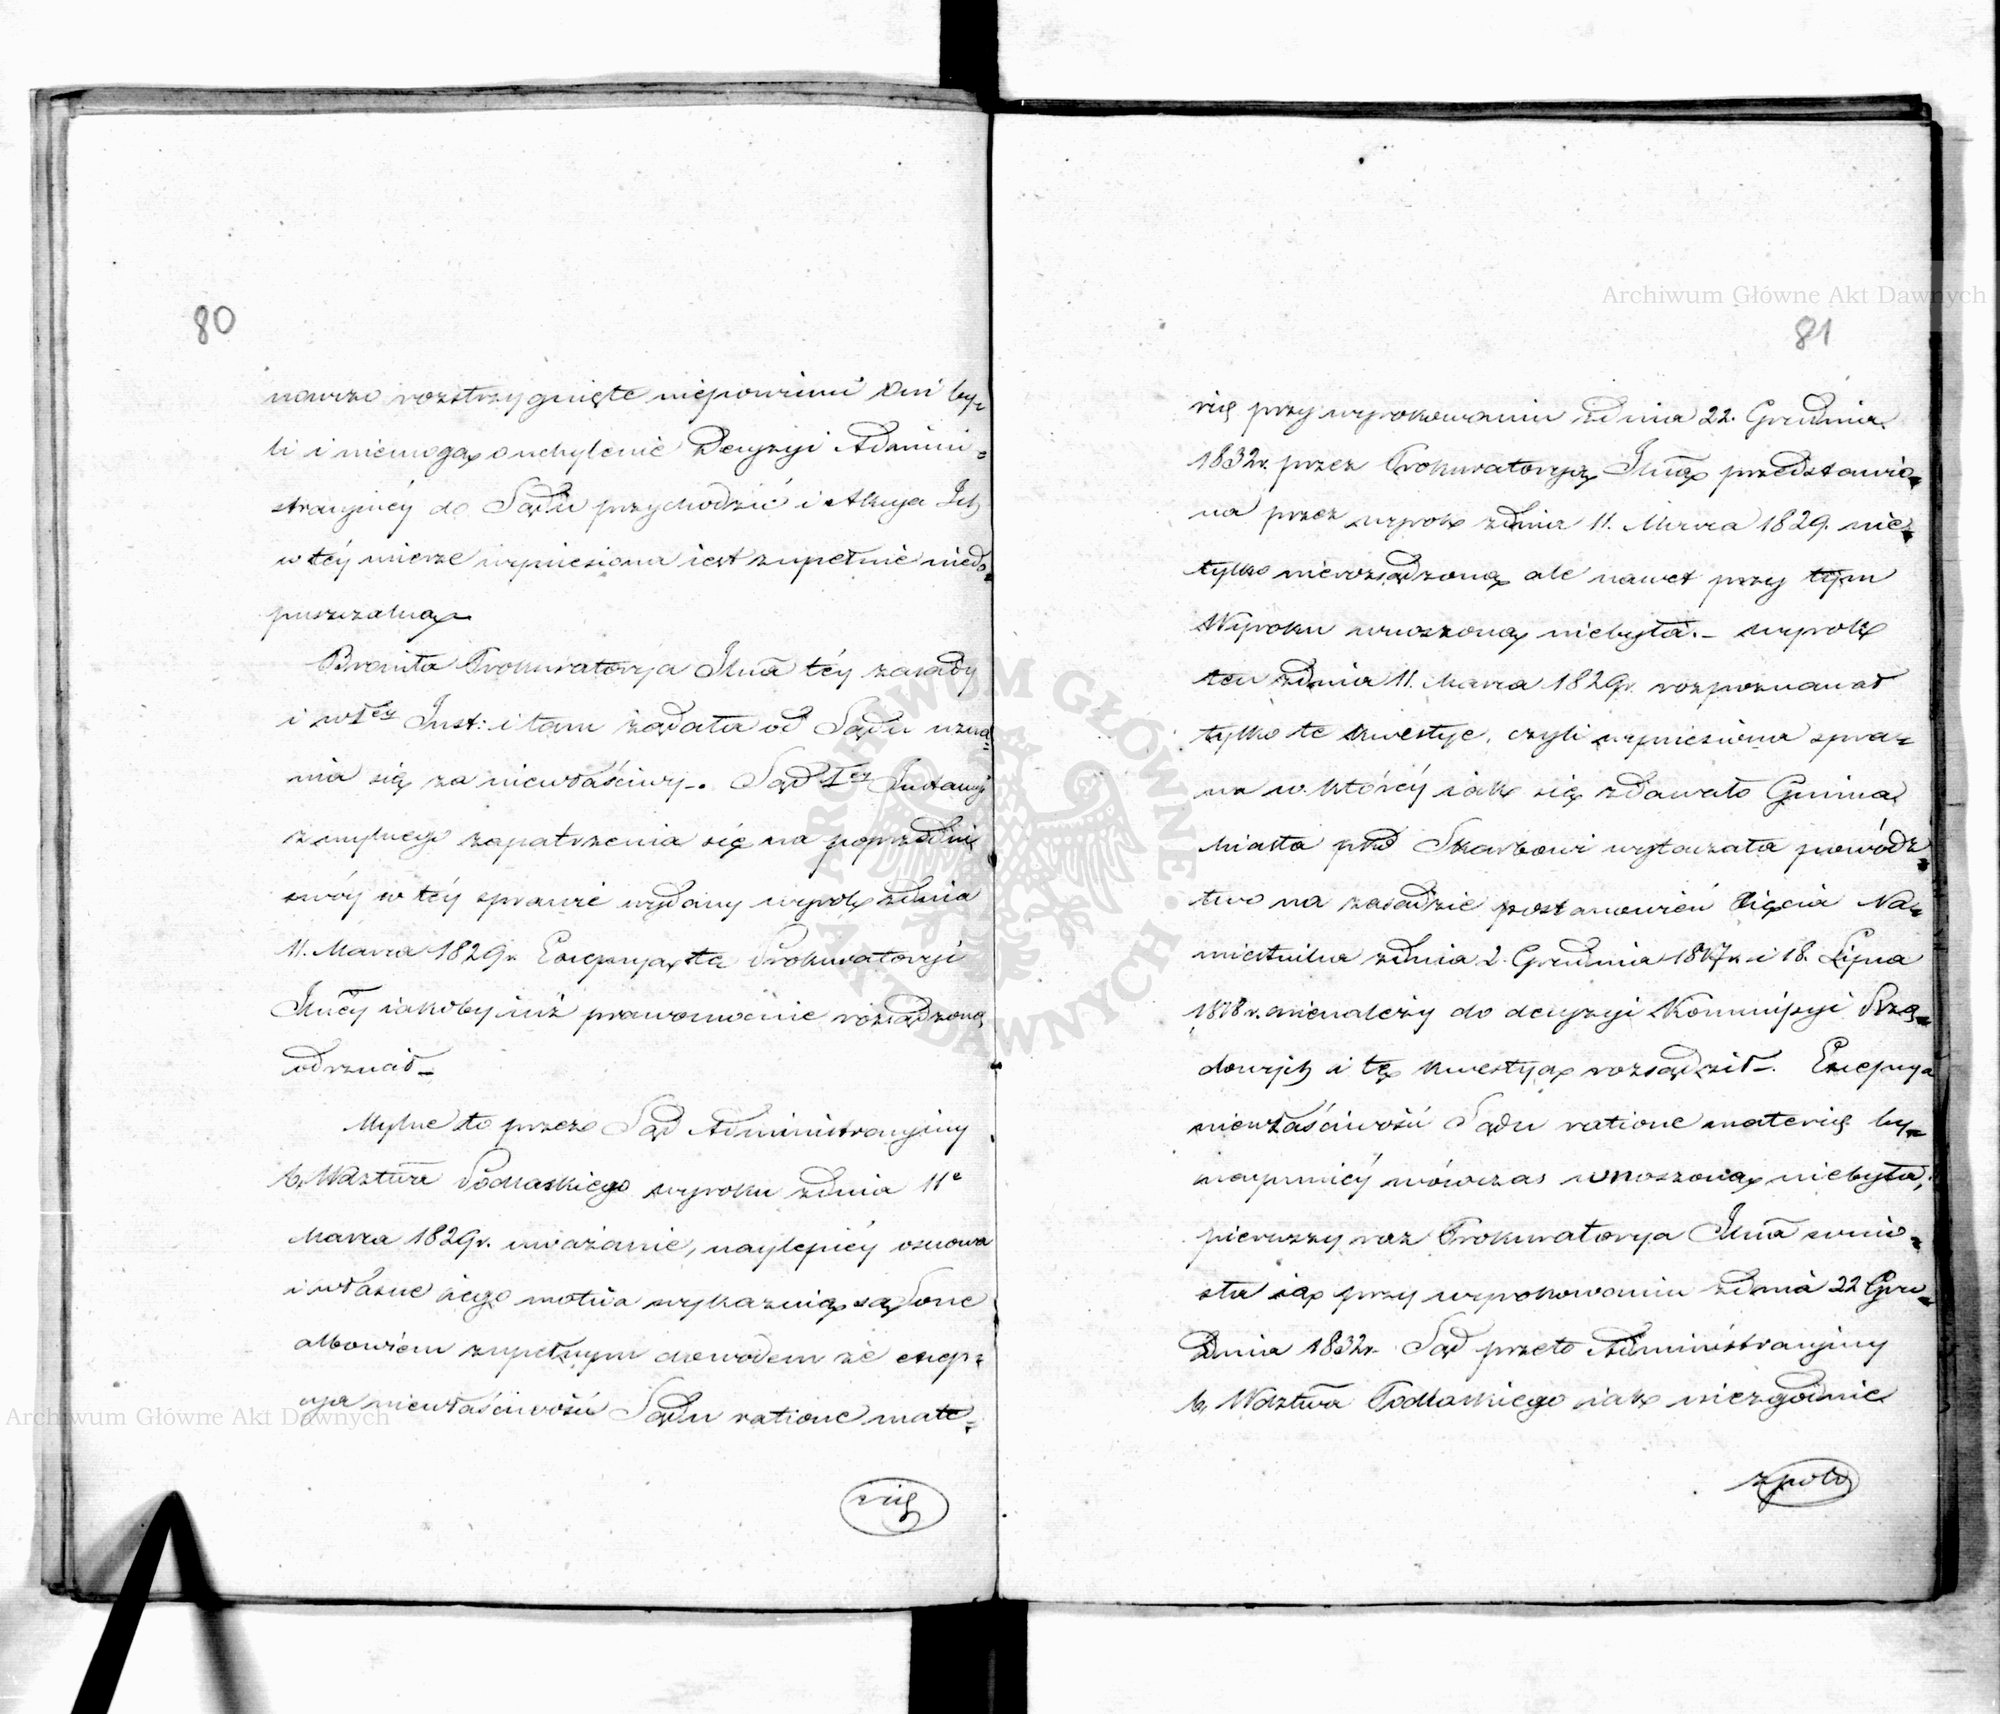 80
nawzo rozstrzygnięte niepowinni oni by-
li i niemogą o uchylenie Decyzyi Admini-
stracyinéy do Sądu przychodzić i Akcya Ich
w téy mierze wyniesiona iest zupełnie niedo-
puszczalną
Broniła Prokuratorya Jlna téy zasady
i w 1éy Inst: i tam żądała od Sądu uzna-
nia się za niewłaściwy. Sąd Iéy Instancyi
z mylnego zapatrzenia się na poprzedni
swóy w téy sprawie wydany wyrok z dnia
11. Marca 1829 r. Excepcyą tę Prokuratoryi
Jlnéy iakoby iuż prawomocnie rozsądzoną
odrzucił
Mylne to przez Sąd Administracyiny
b. Wdztwa Podlaskiego wyroku z dnia 11o
Marca 1829 r. uważanie, naylepiéy osnowa
i własne iego motiva wykazuią są one
albowiem zupełnym dowodem że excep-
cya niewłaściwości Sądu ratione mate-
rię
81
rię przy wyrokowaniu z dnia 22. Grudnia
1832 r. przez Prokuratoryą Jlną przedstawio-
na przez wyrok z dnia 11. Marca 1829. nie-
tylko nierozsądzoną ale nawet przy tym
Wyroku wnoszoną niebyła. wyrok
ten z dnia 11. Marca 1829 r. rozpoznawał
tylko te kwestye, czyli wyniesiona spra-
wa w któréy iak się zdawało Gmina
Miasta pko Skarbowi wytaczała powódz-
two na zasadzie postanowień Xięcia Na-
miestnika z dnia 2. Grudnia 1817 r. i 18. Lipca
1818 r. nienależy do decyzyi Kommissyi Rzą-
dowych i tę kwestyą rozsądził. Excepcya
niewłaściwości Sądu ratione materię by-
naymniéy wówczas wnoszoną niebyła,
pierwszy raz Prokuratorya Jlna wnio-
sła ią przy wyrokowaniu z dnia 22 Gru-
dnia 1832 r. Sąd przeto Administracyiny
b. Wdztwa Podlaskiego iak niezgodnie
z poło
Archiwum Główne Akt Dawnych
Archiwum Główne Akt Dawnych
ARCHIWUM GŁÓWNE AKT DAWNYCH